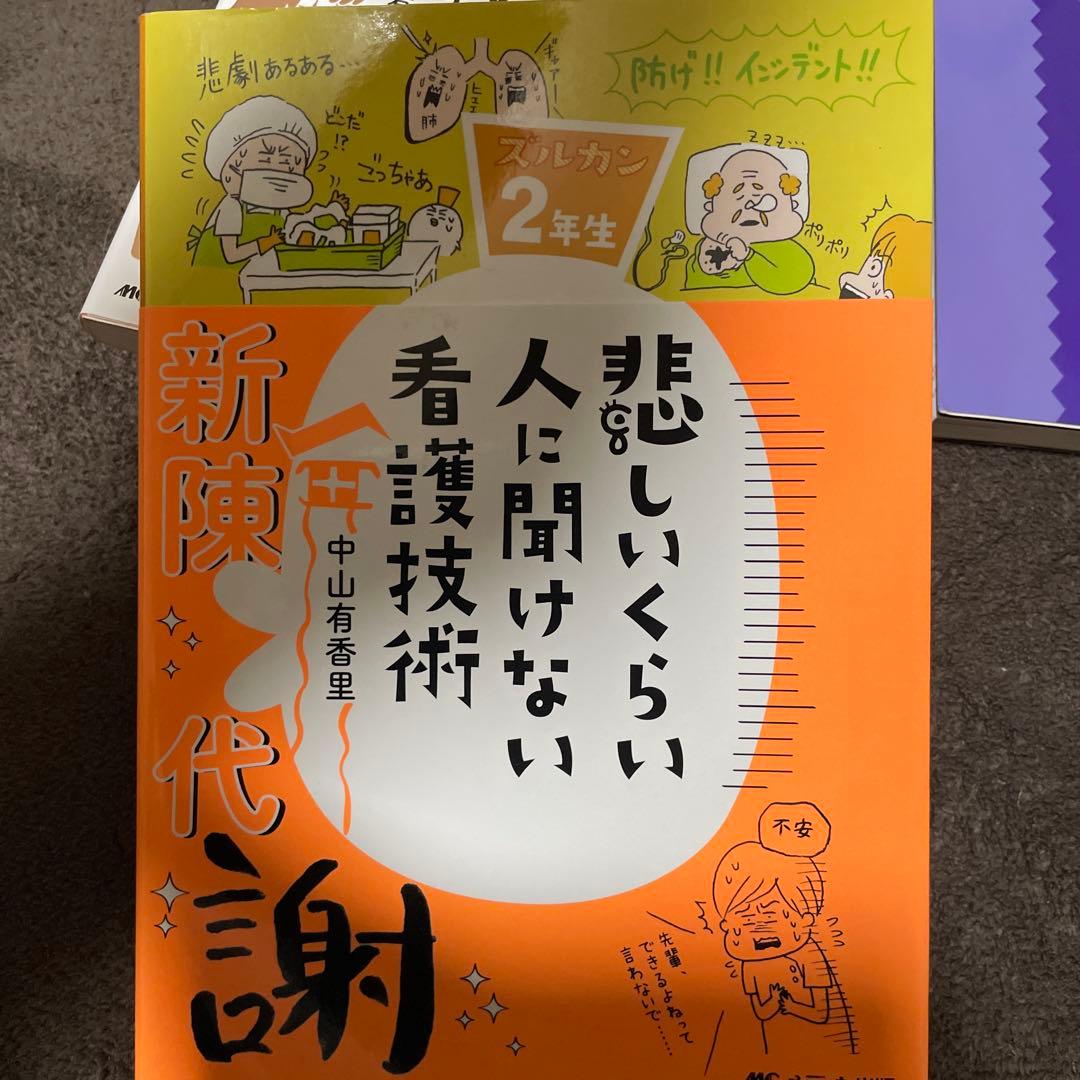 悲劇あるある…
どこだ!?
ごっちゃあ
ギャアー
ヒュエ
肺
防げ!!インシデント!!
ズルカン
2年生
ZZZ…
ポリポリ
悲しいくらい
人に聞けない
看護技術
中山有香里
新陳代謝
不安
先輩、
できるよねって
言わないで……